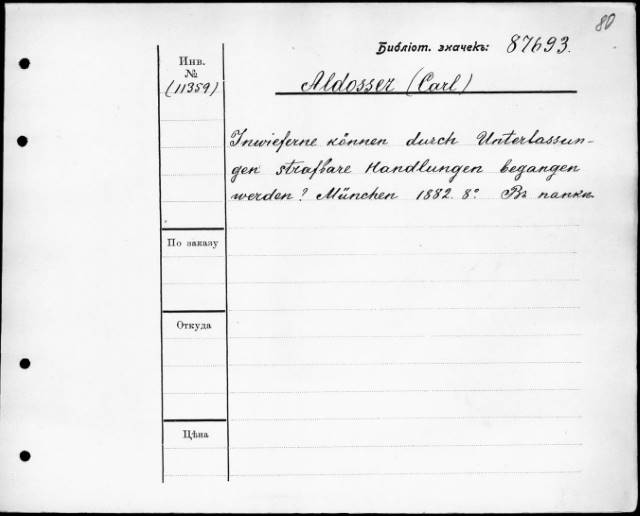 80
Библіот. значекъ: 87693.
Инв.
№
(11359)
Aldosser (Carl)
Inwieferne können durch Unterlassun-
gen strafbare Handlungen begangen
werden? München 1882. 8° Въ папкѣ.
По заказу
Откуда
Цѣна